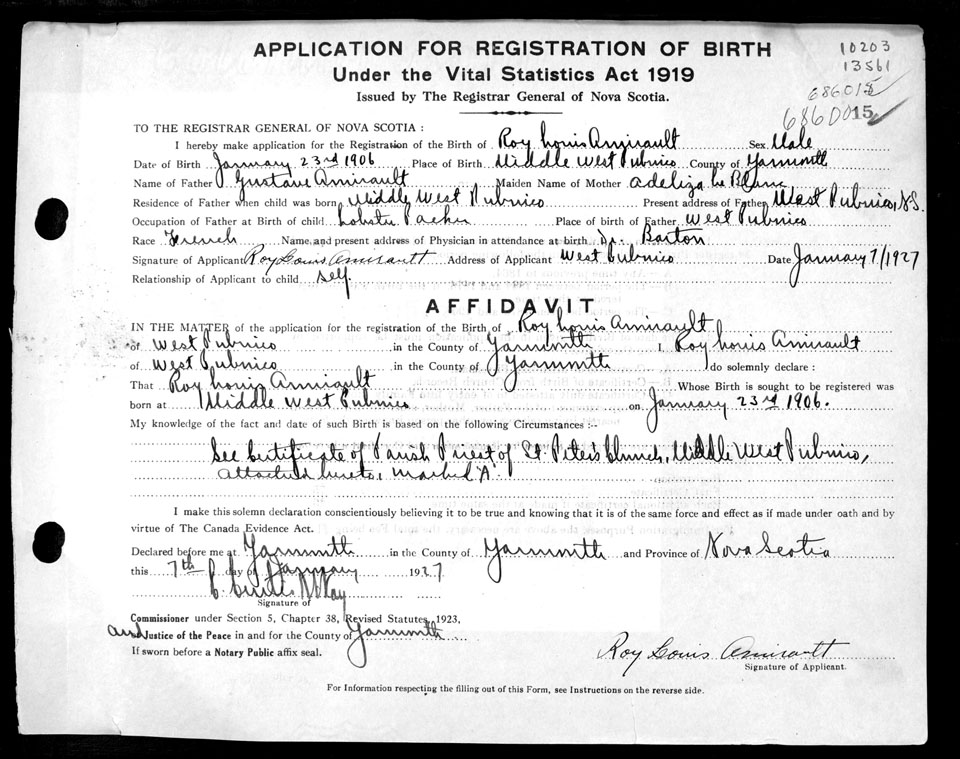 APPLICATION FOR REGISTRATION OF BIRTH
10203
Under the Vital Statistics Act 1919
13561
Issued by The Registrar General of Nova Scotia.
686015
686D0015
TO THE REGISTRAR GENERAL OF NOVA SCOTIA :
I hereby make application for the Registration of the Birth of Roy Louis Amirault Sex Male
Date of Birth January 23rd 1906 Place of Birth Middle West Pubnico County of Yarmouth
Name of Father Gustave Amirault Maiden Name of Mother Adeliza Le Blanc
Residence of Father when child was born Middle West Pubnico Present address of Father West Pubnico, N.S.
Occupation of Father at Birth of child Lobster Packer Place of birth of Father West Pubnico
Race French Name and present address of Physician in attendance at birth Dr. Barton
Signature of Applicant Roy Louis Amirault Address of Applicant West Pubnico Date January 7/1927
Relationship of Applicant to child self
AFFIDAVIT
IN THE MATTER of the application for the registration of the Birth of Roy Louis Amirault
of West Pubnico in the County of Yarmouth I Roy Louis Amirault
of West Pubnico in the County of Yarmouth do solemnly declare :
That Roy Louis Amirault Whose Birth is sought to be registered was
born at Middle West Pubnico on January 23rd 1906.
My knowledge of the fact and date of such Birth is based on the following Circumstances :--
See Certificate of Parish Priest of St Peter's Church, Middle West Pubnico,
attached hereto, marked "A".
I make this solemn declaration conscientiously believing it to be true and knowing that it is of the same force and effect as if made under oath and by
virtue of The Canada Evidence Act.
Declared before me at Yarmouth in the County of Yarmouth and Province of Nova Scotia
this 7th day of January 1927
Signature of
Commissioner under Section 5, Chapter 38, Revised Statutes, 1923,
and Justice of the Peace in and for the County of Yarmouth
If sworn before a Notary Public affix seal.
Roy Louis Amirault
Signature of Applicant.
For Information respecting the filling out of this Form, see Instructions on the reverse side.